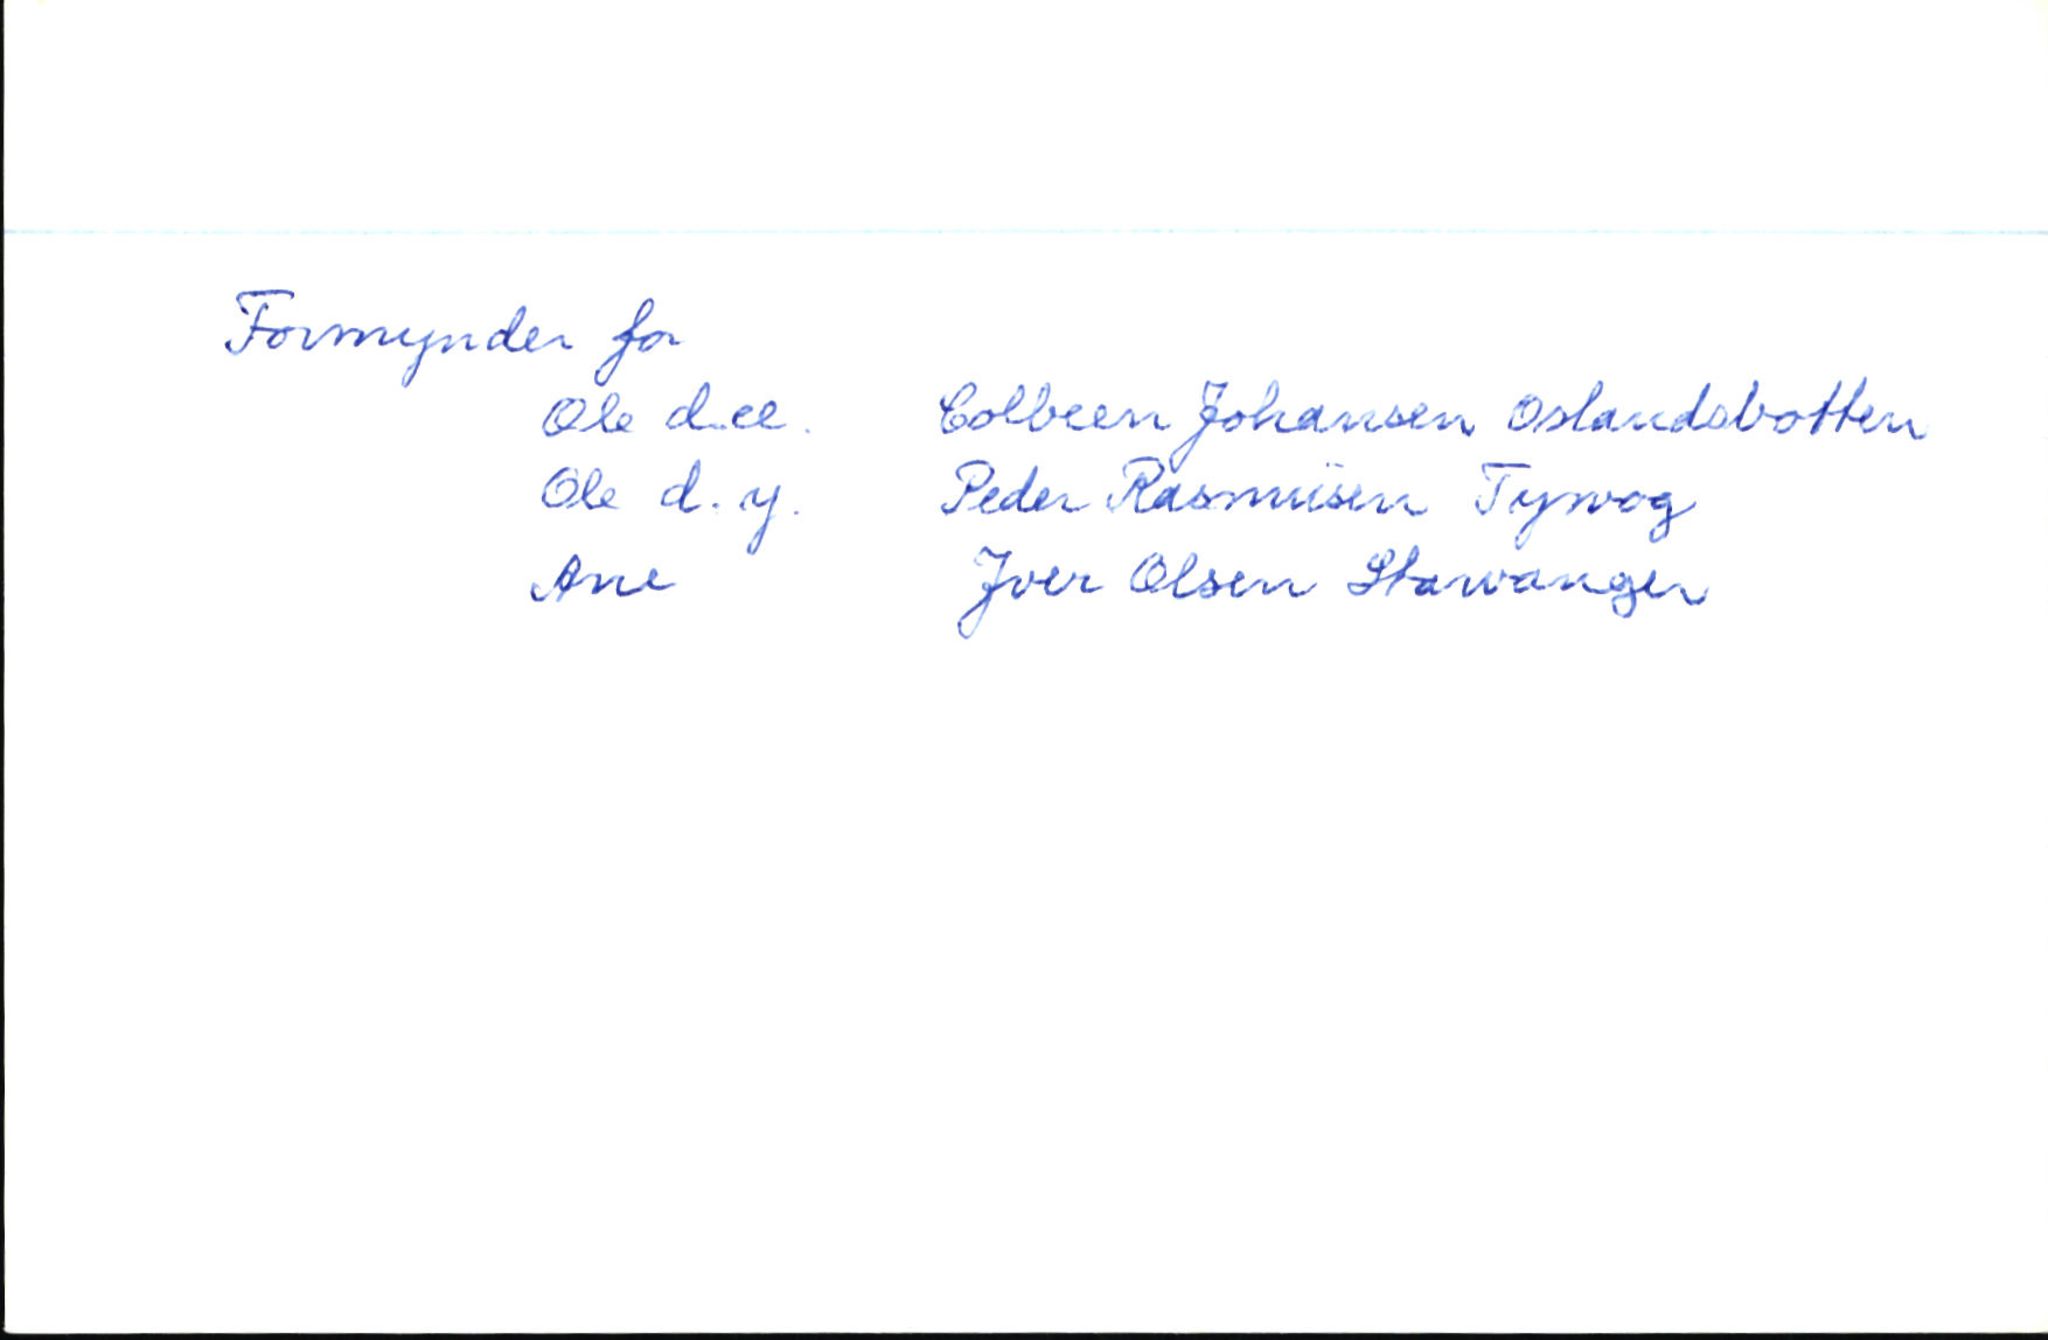 Formynder for
Ole d.el. Colbeen Johansen Oslandsbotten
Ole d.y. Peder Rasmusen Tywog
Ane Iver Olsen Stawanger